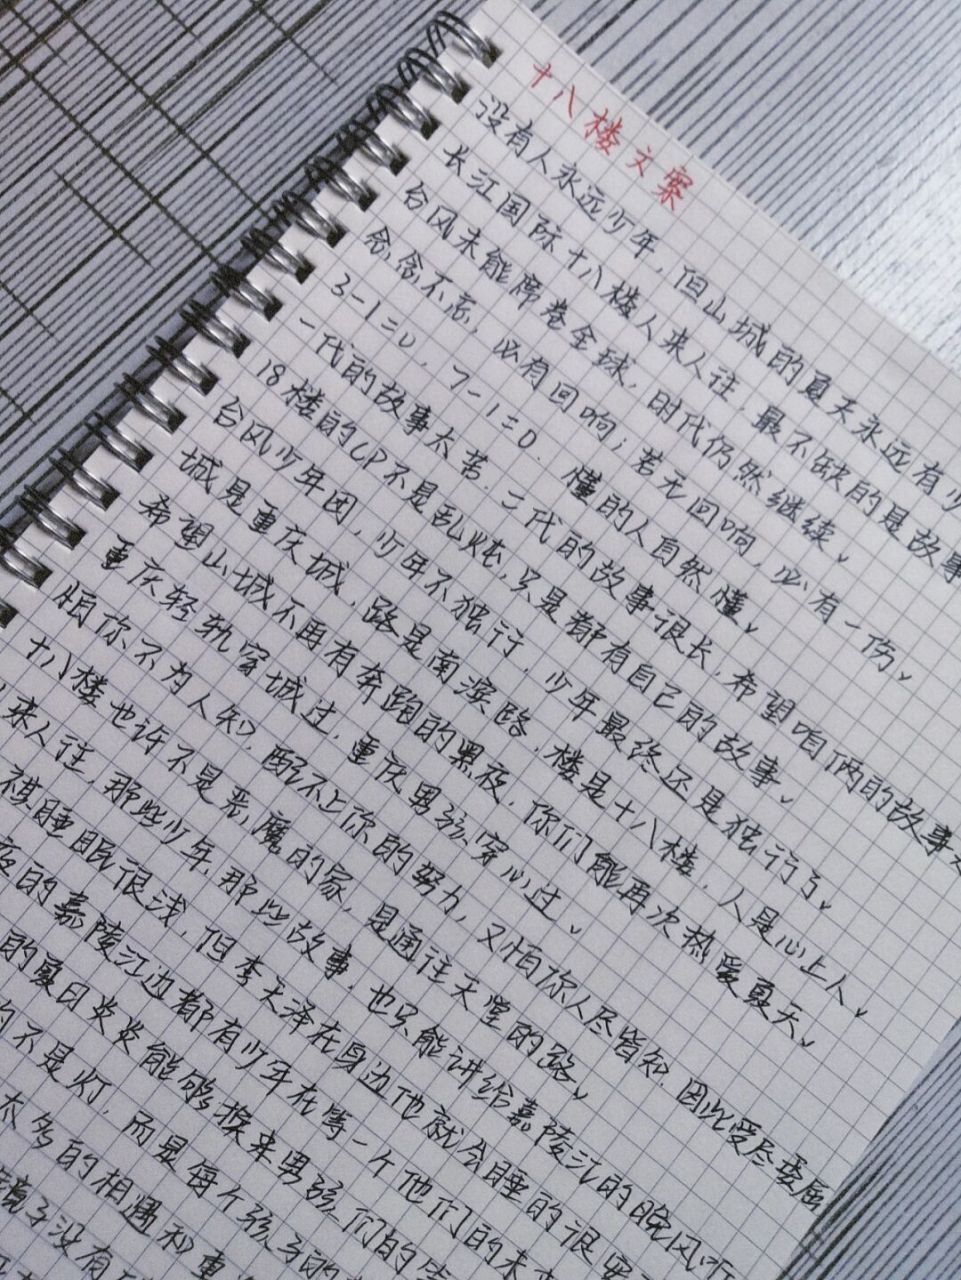 十八楼文案
没有人永远少年，但山城的夏天永远有少
长江国际十八楼人来人往，最不缺的是故事
台风未能席卷全球，时代仍然继续。
念念不忘，必有回响；若无回响，必有一伤。
3-1=0，7-1=0，懂的人自然懂。
一代的故事太苦，三代的故事很长，希望咱们的故事
18楼的CP不是乱炖，只是都有自己的故事。
台风少年团，少年不独行，少年最终还是独行了。
城是重庆城，路是南滨路，楼是十八楼，人是心上人。
希望山城不再有奔跑的黑夜，你们能再次热爱夏天。
重庆轻轨穿城过，重庆男孩穿心过。
怕你不为人知，配不上你的努力，又怕你人尽皆知，因此受尽委屈
十八楼也许不是恶魔的家，是通往天堂的路。
来人往，那些少年，那些故事，也只能讲给嘉陵江的晚风听
祺睡眠很浅，但李天泽在身边他就会睡的很
夜的嘉陵江边都有少年在等一个他们的未
的夏日炎炎能够换来男孩们的
不是灯，而是每个孩子的
太多的相遇和重
镜子没有